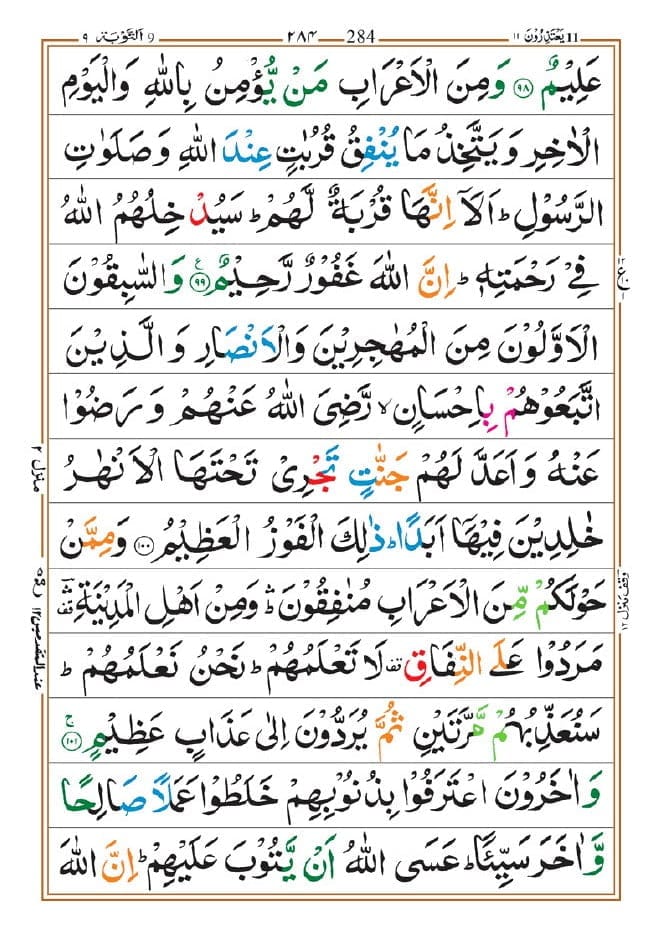 ١١ يَعْتَذِرُوْنَ 11 284 ٢٨٤ 9 اَلتَّوْبَة ٩
عَلِيْمٌ ۝٩٨ وَمِنَ الْاَعْرَابِ مَنْ يُّؤْمِنُ بِاللّٰهِ وَالْيَوْمِ
الْاٰخِرِ وَيَتَّخِذُ مَا يُنْفِقُ قُرُبٰتٍ عِنْدَ اللّٰهِ وَصَلَوٰتِ
الرَّسُوْلِ ؕ اَلَاۤ اِنَّهَا قُرْبَةٌ لَّهُمْ ؕ سَيُدْخِلُهُمُ اللّٰهُ
فِىْ رَحْمَتِهٖ ؕ اِنَّ اللّٰهَ غَفُوْرٌ رَّحِيْمٌ ۝٩٩ وَالسّٰبِقُوْنَ
ع
الْاَوَّلُوْنَ مِنَ الْمُهٰجِرِيْنَ وَالْاَنْصَارِ وَالَّذِيْنَ
اتَّبَعُوْهُمْ بِاِحْسَانٍ ۙ رَّضِىَ اللّٰهُ عَنْهُمْ وَرَضُوْا
عَنْهُ وَاَعَدَّ لَهُمْ جَنّٰتٍ تَجْرِىْ تَحْتَهَا الْاَنْهٰرُ
منزل ٢
خٰلِدِيْنَ فِيْهَاۤ اَبَدًا ؕ ذٰلِكَ الْفَوْزُ الْعَظِيْمُ ۝١٠٠ وَمِمَّنْ
حَوْلَكُمْ مِّنَ الْاَعْرَابِ مُنٰفِقُوْنَ ؕۛ وَمِنْ اَهْلِ الْمَدِيْنَةِ ؔۛ
وقف منزل ١٢
مَرَدُوْا عَلَى النِّفَاقِ لَا تَعْلَمُهُمْ ؕ نَحْنُ نَعْلَمُهُمْ ؕ
سَنُعَذِّبُهُمْ مَّرَّتَيْنِ ثُمَّ يُرَدُّوْنَ اِلٰى عَذَابٍ عَظِيْمٍ ۝١٠١
وَاٰخَرُوْنَ اعْتَرَفُوْا بِذُنُوْبِهِمْ خَلَطُوْا عَمَلًا صَالِحًا
وَّاٰخَرَ سَيِّئًا ؕ عَسَى اللّٰهُ اَنْ يَّتُوْبَ عَلَيْهِمْ ؕ اِنَّ اللّٰهَ